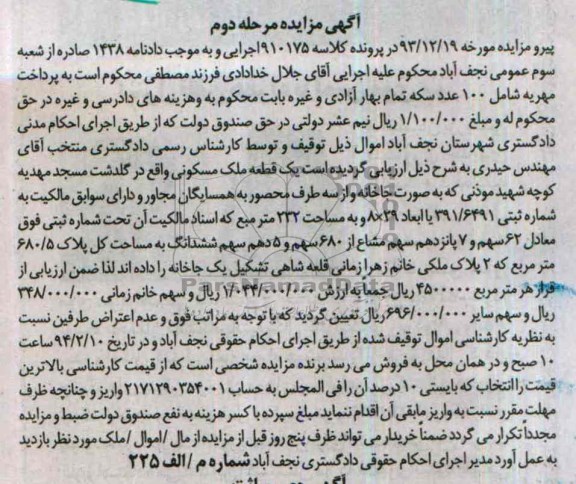 آگهی مزایده مرحله دوم
پیرو مزایده مورخه ۹۳/۱۲/۱۹ در پرونده کلاسه ۹۱۰۱۷۵ اجرایی و به موجب دادنامه ۱۴۳۸ صادره از شعبه
سوم عمومی نجف آباد محکوم علیه اجرایی آقای جلال خدادادی فرزند مصطفی محکوم است به پرداخت
مهریه شامل ۱۰۰ عدد سکه تمام بهار آزادی و غیره بابت محکوم به وهزینه های دادرسی و غیره در حق
محکوم له و مبلغ ۱/۱۰۰/۰۰۰ ریال نیم عشر دولتی در حق صندوق دولت که از طریق اجرای احکام مدنی
دادگستری شهرستان نجف آباد اموال ذیل توقیف و توسط کارشناس رسمی دادگستری منتخب آقای
مهندس حیدری به شرح ذیل ارزیابی گردیده است یک قطعه ملک مسکونی واقع در گلدشت مسجد مهدیه
کوچه شهید موذنی که به صورت جاخانه واز سه طرف محصور به همسایگان مجاور و دارای سوابق مالکیت به
شماره ثبتی ۳۹۱/۶۴۹۱ با ابعاد ۸×۳۹ و به مساحت ۲۳۲ متر مبع که اسناد مالکیت آن تحت شماره ثبتی فوق
معادل ۶۲ سهم و ۷ پانزدهم سهم مشاع از ۶۸۰ سهم و ۵ دهم سهم ششدانگ به مساحت کل پلاک ۶۸۰/۵
متر مربع که ۲ پلاک ملکی خانم زهرا زمانی قلعه شاهی تشکیل یک جاخانه را داده اند لذا ضمن ارزیابی از
قرار هر متر مربع ۴۵۰۰۰۰۰ ریال جمعا به ارزش ۱/۰۴۴/۰۰۰/۰۰۰ ریال و سهم خانم زمانی ۳۴۸/۰۰۰/۰۰۰
ریال و سهم سایر ۶۹۶/۰۰۰/۰۰۰ ریال تعیین گردید که با توجه به مراتب فوق و عدم اعتراض طرفین نسبت
به نظریه کارشناسی اموال توقیف شده از طریق اجرای احکام حقوقی نجف آباد و در تاریخ ۹۴/۲/۱۰ ساعت
۱۰ صبح و در همان محل به فروش می رسد برنده مزایده شخصی است که از قیمت کارشناسی بالاترین
قیمت را انتخاب که بایستی ۱۰ درصد آن را فی المجلس به حساب ۲۱۷۱۲۹۰۳۵۴۰۰۱ واریز و چنانچه ظرف
مهلت مقرر نسبت به واریز مابقی آن اقدام ننماید مبلغ سپرده با کسر هزینه به نفع صندوق دولت ضبط و مزایده
مجدداً تکرار می گردد ضمناً خریدار می تواند ظرف پنج روز قبل از مزایده از مال /اموال /ملک مورد نظر بازدید
به عمل آورد مدیر اجرای احکام حقوقی دادگستری نجف آباد شماره م /الف ۲۲۵
ParsNamadData